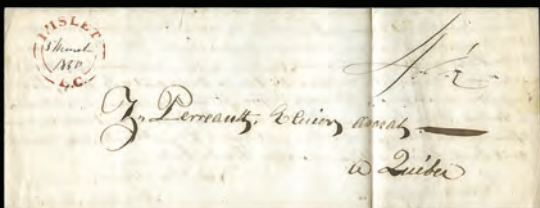 L'ISLET
5 March
1850
L.C.
Z. Perreault, Ecuier, avocat
à Québec